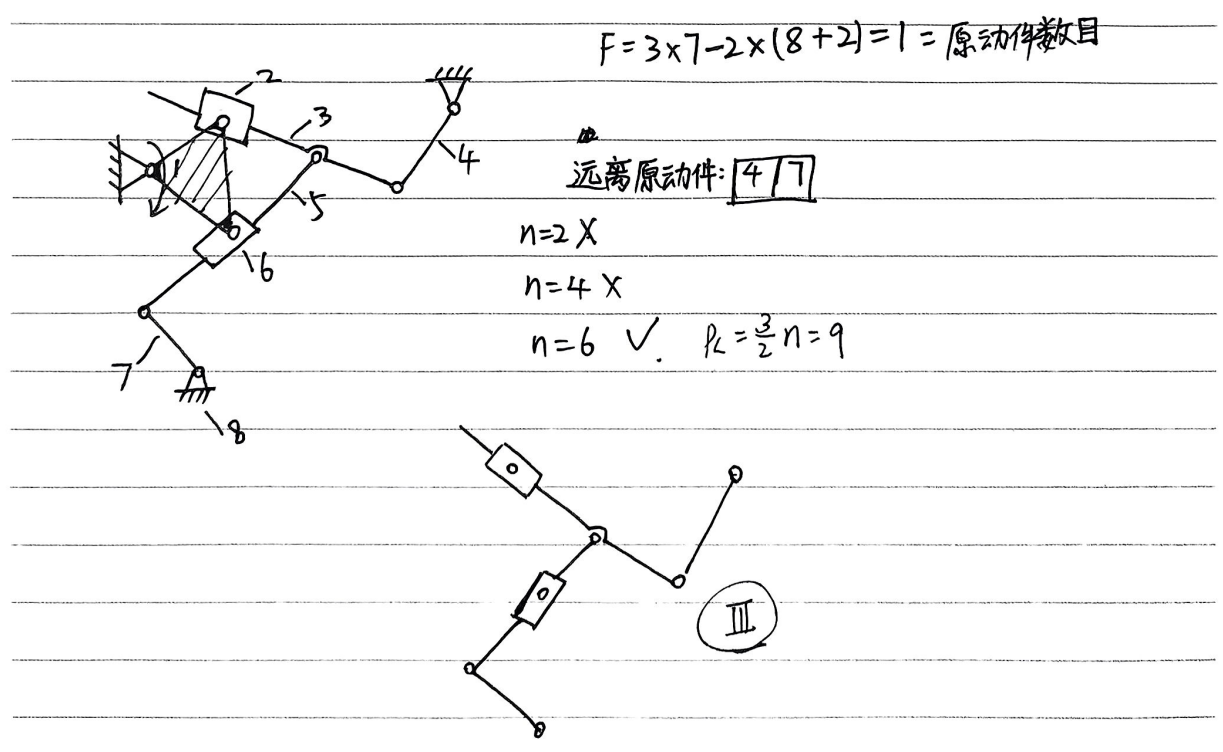 F=3×7-2×(8+2)=1=原动件数目
2
3
4
1
5
6
7
8
远离原动件: 4 7
n=2 ×
n=4 ×
n=6 √. PL=3/2 n=9
III